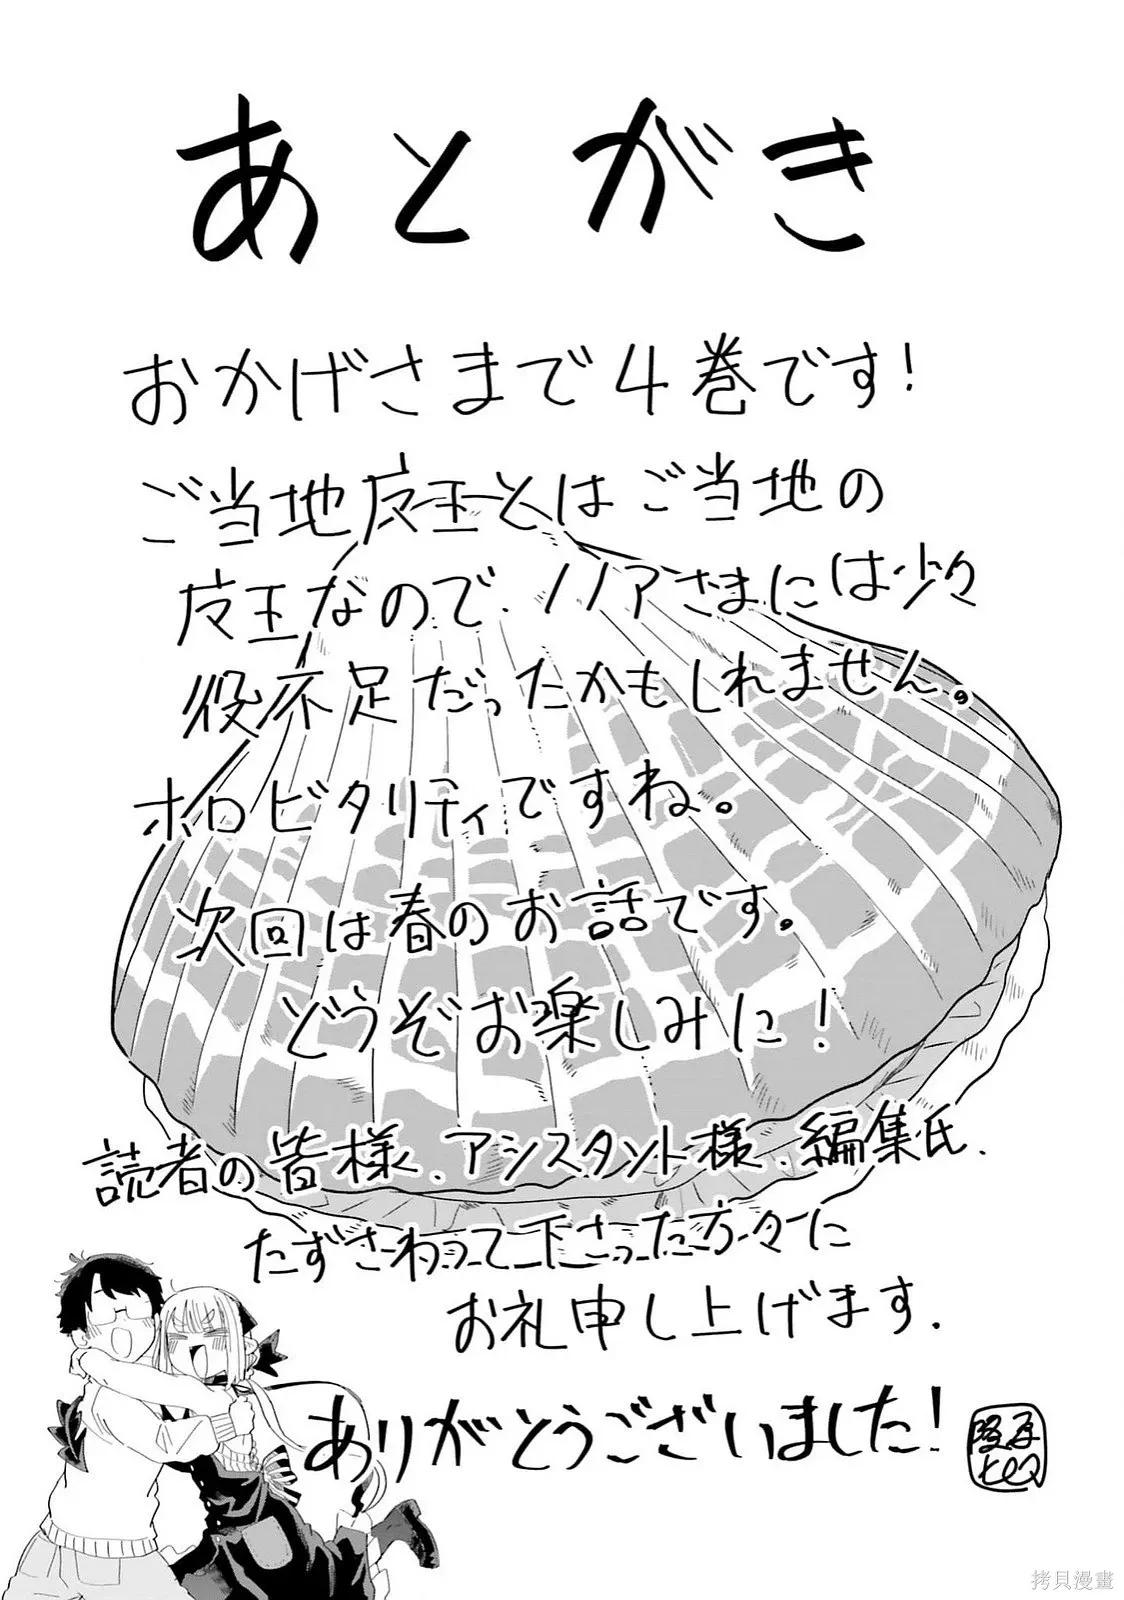 あとがき
おかげさまで4巻です!
ご当地魔王とはご当地の
魔王なので、ノノアさまには少々
役不足だったかもしれません。
ホロビタリティですね。
次回は春のお話です。
どうぞお楽しみに!
読者の皆様、アシスタント様、編集氏、
たずさわって下さった方々に
お礼申し上げます.
ありがとうございました!
拷貝漫畫